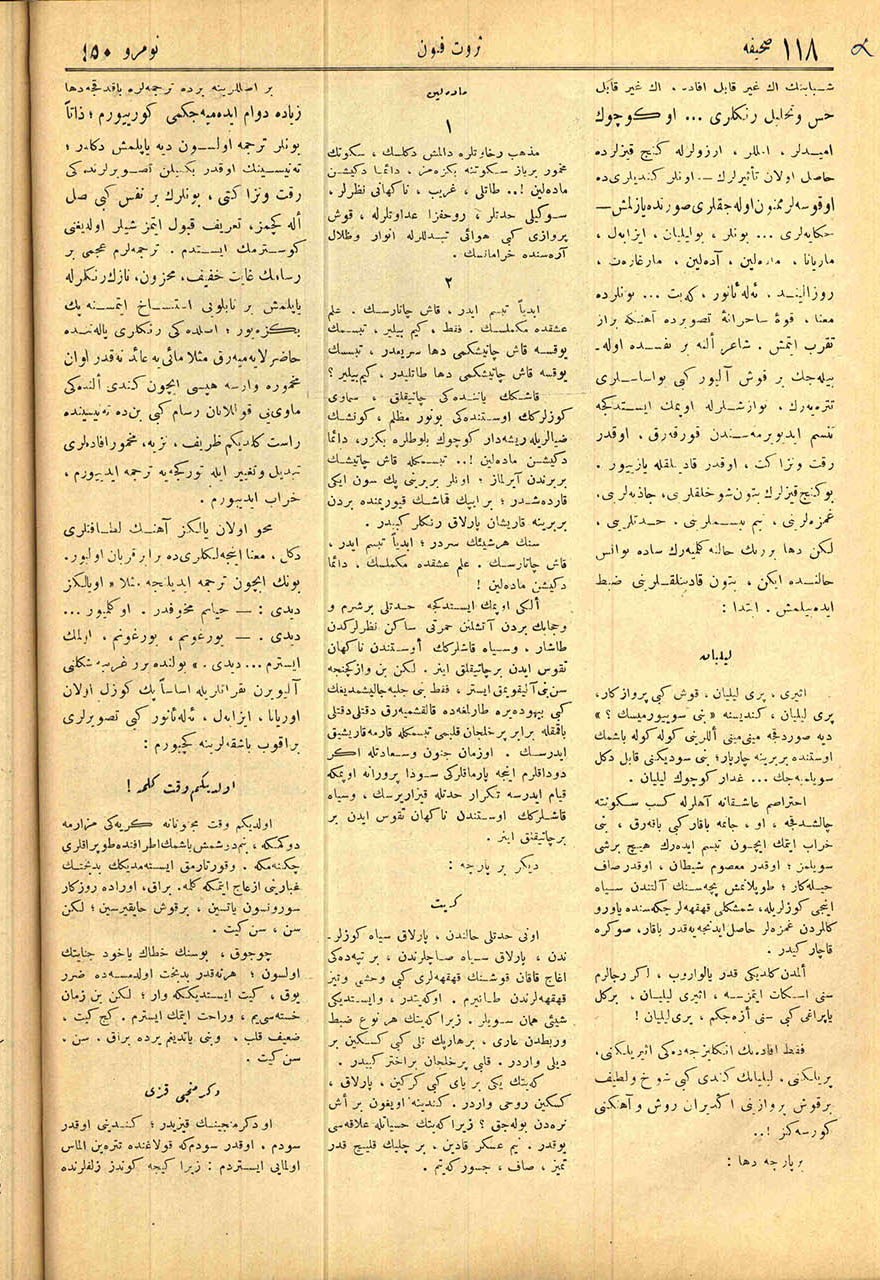 صحیفه ١١٨
ثروت فنون
نومرو ٤٥٠
شبابنك اك غير قابل افاده، اك غير قابل
حس وتحليل رنكلرى ... او كوچوك
اميدلر، امللر، ارزولرله كنج قيزلرده
حاصل اولان تأثيرلرك — اونلر كنديلرى ده
اوقوسه لر ممنون اوله جقلرى صورتده يازلمش —
حكايه لرى ... بونلر، بو ليليان، ايزابه ل،
ماريانا، ماده لين، آده لين، مارغارەت،
روزاليند. ئه له ئانور، كەيت ... بونلرده
معنا، قوۀ ساحرانۀ تصويرده آهنكه براز
تقرب ايتمش. شاعر ألنه بر نفسده اوله‌ـ
بيله جك بر قوش آليور كبى بو اساسلرى
تتره يه رك، نوازشلرله اوپمك ايستدكجه
تنسم ايديويرمه‌سندن قورقه رق، اوقدر
رقت ونزاكت، اوقدر قادينلقله يازييور.
بو كنج قيزلرك بتون شوخلقلرى، جاذبه لرى،
غمزه لرينى، نيم تبسملرينى. حدتلرينى،
لكن دها بررنك حالنه كلميه رك ساده نوانس
حالنده ايكن، بتون قادينلقلرينى ضبط
ايده بيلمش. ابتدا:
ليليان
اثيرى، پرى ليليان، قوش كبى پروازكار،
پرى ليليان، كندينه « بنى سوييورميسك ؟ »
ديه صوردقجه مينى مينى أللرينى كوله كوله باشمك
اوستنده بربرينه چارپار؛ بنى سوديكنى قابل دكل
سويله ميه جك ... غدار كوچوك ليليان.
احتراصم عاشقانه آهلرله كسب سكونته
چالشدقجه، او، جامه باقار كبى باقه رق، بنى
خراب ايتمك ايچون تبسم ايده رك هيچ برشى
سويلمز؛ اوقدر معصوم شيطان، اوقدر صاف
حيله كار؛ طوپلانمش پچه سنك آلتندن سياه
اينجى كوزلريله، شمشكلى قهقهه لر چكه سنده ياورو
كللردن غمزه لر حاصل ايدنجه يه قدر باقار، صوكره
قاچار كيدر.
ألمدن كلديكى قدر يالواروب، اكر رجالرم
سنى اسكات ايتمزسه، اثيرى ليليان، بركل
ياپراغى كبى سنى أزه جكم، پرى ليليان !
فقط افاده نك انكليزجه ده كى اثيريلكنى،
پريلكنى، ليليانك كندى كبى شوخ ولطيف
برقوش پروازينى اكديران روش وآهنكنى
كورسه كز !..
بر پارچه دها :
ماده لين
١
مذهب رخاوتلره دالمش دكلسك، سكوتك
مخمور بر ياز سكوتنه بكزه من، دائما دكيشن
ماده لين !.. طاتلى، غريب، ناكهانى نظرلر،
سوكيلى حدتلر، روحفزا عداوتلرله، قوش
پروازى كبى هوائى تبدللرله انوار وظلال
آره سنده خرامانسك.
٢
ابدياً تبسم ايدر، قاش چاتارسك. علم
عشقده مكملسك. فقط، كيم بيلير، تبسمك
يوقسه قاش چاتيشكمى دها سريعدر، تبسمك
يوقسه قاش چاتيشكمى دها طاتليدر، كيم بيلير ؟
قاشكك ياننده كى چاتيقلق، سماوى
كوزلركك اوستنده كى بونور مظلم، كونشك
ضيالريله ريشه دار كوچوك بلوطلره بكزر، دائما
دكيشن ماده لين !.. تبسمكله قاش چاتيشك
بربرندن آيرلماز؛ اونلر بربرينى پك سون ايكى
قارده شدر؛ بر ايپك قماشك قيوريمنده بردن
بربرينه قاريشان پارلاق رنكلر كبيدر.
سنك هرشيئك سردر؛ ابدياً تبسم ايدر،
قاش چاتارسك. علم عشقده مكملسك. دائما
دكيشن ماده لين !
ألكى اوپمك ايستدكجه حدتلى برشرم و
وحجابك بردن آتشلنن حمرتى ساكن نظرلركدن
طاشار، وسياه قاشلركك أوستندن ناكهان
تقوس ايدن برچاتيقلق اينر. لكن بن وازكچنجه
سن بنى آليقويمق ايستر، فقط بنى جلبه چاليشمديغك
كبى بيهوده يره طارلمغله ده قالقشميه رق دقتلى دقتلى
باقمقله برابر پرخلجان قلبمى تبسمكله قارمه قاريشيق
ايدرسك. اوزمان جنون وسعادتله اكر
دوداقلرم اينجه پارماقلركى سودا پرورانه اوپمكه
قيام ايدرسه تكرار حدتله قيزاريرسك، وسياه
قاشلركك اوستندن ناكهان تقوس ايدن بر
برچاتيقلق اينر.
ديكر بر پارچه :
كەيت
اونى حدتلى حالندن، پارلاق سياه كوزلرـ
ندن، پارلاق سياه صاچلرندن، بر تپه ده كى
اغاج قاقان قوشنك قهقهه لرى كبى وحشى وتيز
قهقهه لرندن طانيرم. او كەيتدر، وايستديكى
شيئى همان سويلر. زيرا كەيتك هر نوع ضبط
وربطدن عارى، برهارپك تلى كبى كسكين بر
ديلى واردر. قلبى پرخلجان براختر كبيدر.
كەيتك يكى بر ياى كبى كركين، پارلاق،
كسكين روحى واردر. كندينه اويغون بر أش
نره دن بوله جق ؟ زيرا كەيتك حسياتله علاقه سى
يوقدر. نيم عسكر قادين. بر چليك قليج قدر
تميز، صاف، جسور كەيتم.
بر اصللرينه برده ترجمه لره باقدقجه دها
زياده دوام ايده ميه جكمى كورييورم؛ ذاتاً
بونلر ترجمه اولسون ديه ياپلمش دكلدر؛
ته نيسينك اوقدر بكنيلن تصويرلرنده كى
رقت ونزاكتى، بونلرك بر نفس كبى صل
أله كچمز، تعريف قبول ايتمز شيلر اولديغنى
كوسترمك ايستدم. ترجمه لرم عجمى بر
رسامك غايت خفيف، محزون، نازك رنكلرله
ياپلمش بر تابلويى استنساخ ايتمسنه پك
بكزه يور؛ اصلده كى رنكلرى پالەتنده
حاضرلايه ميه رق مثلا مائى يه عائد نه قدر الوان
مخموره وارسه هپسى ايچون كندى ألنده كى
ماوى يى قوللانان رسام كبى بن ده ته نيسينده
راست كلديكم ظريف، نزيه، مخمور افاده لرى
تبديل وتغيير ايله توركجه يه ترجمه ايدييورم،
خراب ايدييورم.
محو اولان يالكز آهنك لطافتلرى
دكل، معنا اينجه لكلرى ده برابر قربان اوليور.
بونك ايچون ترجمه ايدينجه مثلا « اويالكز
ديدى : — حياتم مخوفدر. او كليور ...
ديدى. — يورغونم، يورغونم، اولمك
ايسترم ... ديدى. » يولنده برر غريبه شكلنى
آليويرن نقراتلريله اساساً پك كوزل اولان
اوريانا، ايزابەل، ئەلەئانور كبى تصويرلرى
براقوب باشقه لرينه كچيورم :
اولديكم وقت كلمه !
اولديكم وقت مجنونانه كريه كى مزارمه
دوكمكه، بنم دوشمش باشمك اطرافنده طوپراقلرى
چكنه مكه. وقورتارمق ايسته مديكك بدبختك
غبارينى ازعاج ايتمكه كلمه. براق، اوراده روزكار
سورونسون ياتسين، برقوش حايقيرسين؛ لكن
سن، سن كيت.
چوجوق، بوسنك خطاك ياخود جنايتك
اولسون؛ هرنه قدر بدبخت اولدمسه ده ضرر
يوق، كيت ايستديككه وار؛ لكن بن زمان
خسته سى يم، وراحت ايتمك ايسترم. كچ كيت،
ضعيف قلب، وبنى ياتديغم يرده براق. سن.
سن كيت.
دكرمنجى قزى
او دكرمنجينك قيزيدر؛ كندينى اوقدر
سودم. اوقدر سودم كه قولاغنده تتره ين الماس
اولمايى ايستردم : زيرا كيجه كوندز زلفلرنده